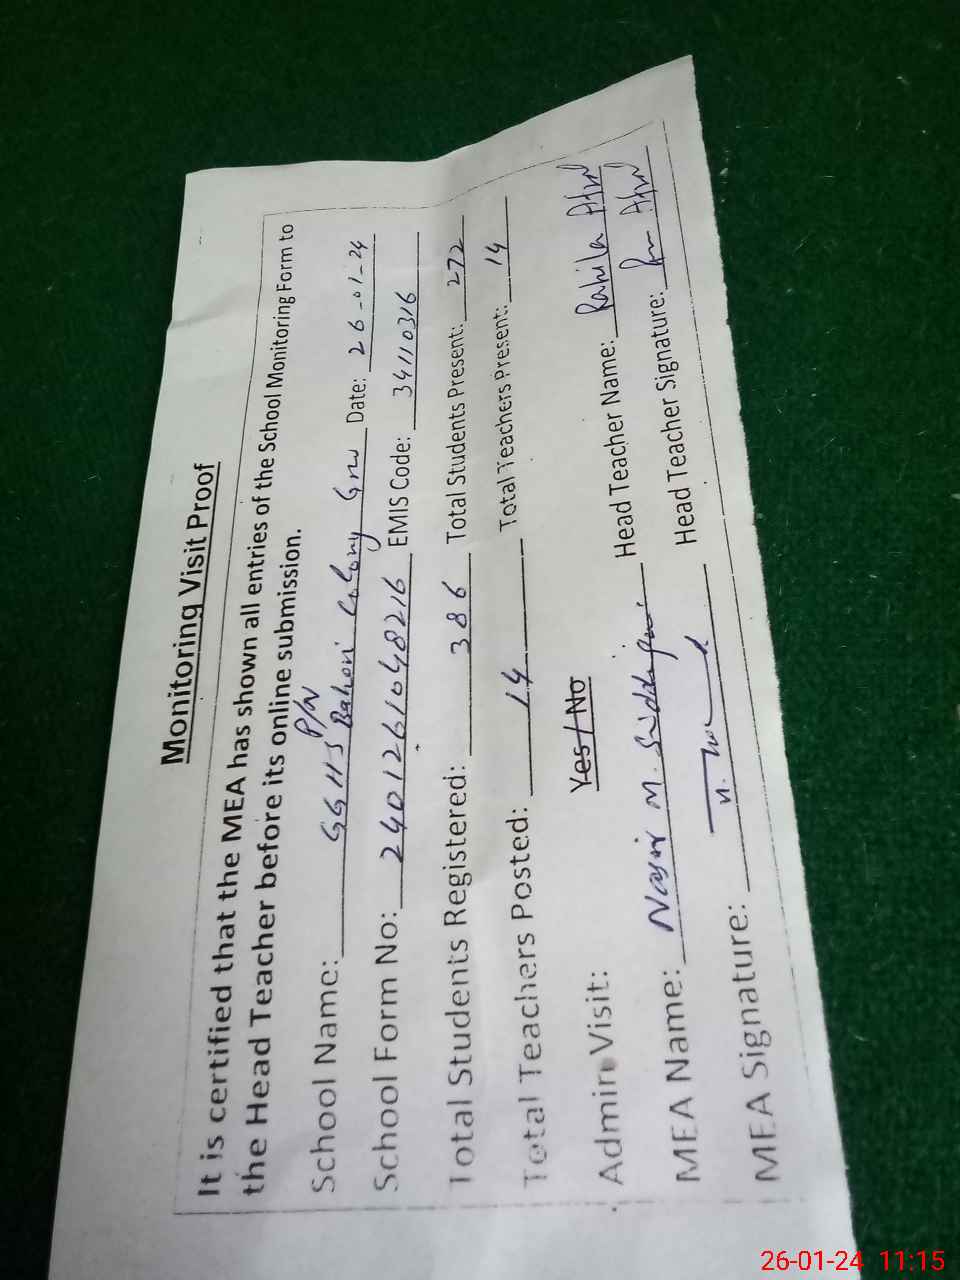 Monitoring Visit Proof
It is certified that the MEA has shown all entries of the School Monitoring Form to
the Head Teacher before its online submission.
School Name: GGHS P/N Bahari Colony Grw Date: 26-01-24
School Form No: 2401261048216 EMIS Code: 34110316
Total Students Registered: 386 Total Students Present: 272
Total Teachers Posted: 14 Total Teachers Present: 14
Admin Visit: Yes / No
MEA Name: Nasir M. Siddiqui Head Teacher Name: Rahila Afzal
MEA Signature: Head Teacher Signature:
26-01-24 11:15